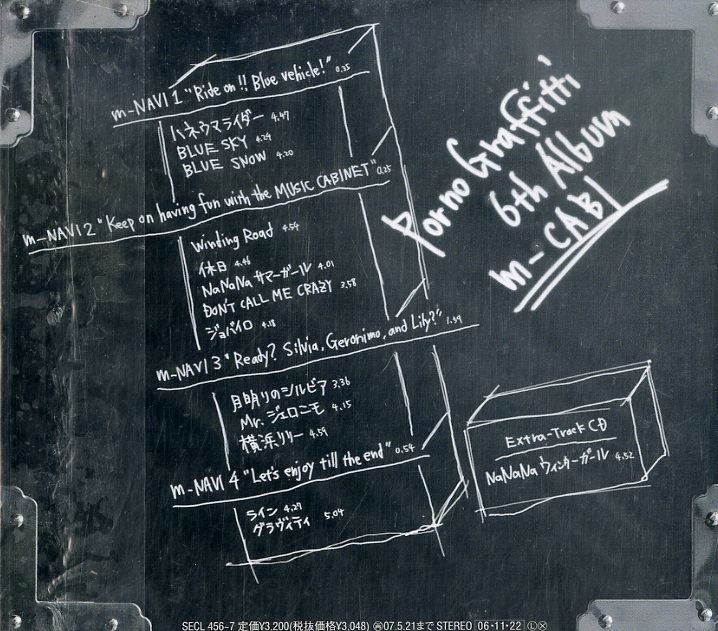 m-NAVI 1 "Ride on!! Blue vehicle!" 0.35
ハネウマライダー 4.47
BLUE SKY 4.29
BLUE SNOW 4.20
m-NAVI 2 "Keep on having fun with the MUSIC CABINET" 0.25
Winding Road 4.54
休日 4.46
NaNaNa サマーガール 4.01
DON'T CALL ME CRAZY 3.58
ジョバイロ 4.18
m-NAVI 3 "Ready? Silvia, Geronimo, and Lily?" 1.39
月明りのシルビア 3.36
Mr. ジェロニモ 4.15
横浜リリー 4.59
m-NAVI 4 "Let's enjoy till the end" 0.54
ライン 4.29
グラヴィティ 5.04
Porno Graffitti
6th Album
m-CABI
Extra-Track CD
NaNaNa ウィンターガール 4.52
SECL 456-7 定価¥3,200(税抜価格¥3,048) 07.5.21まで STEREO 06・11・22